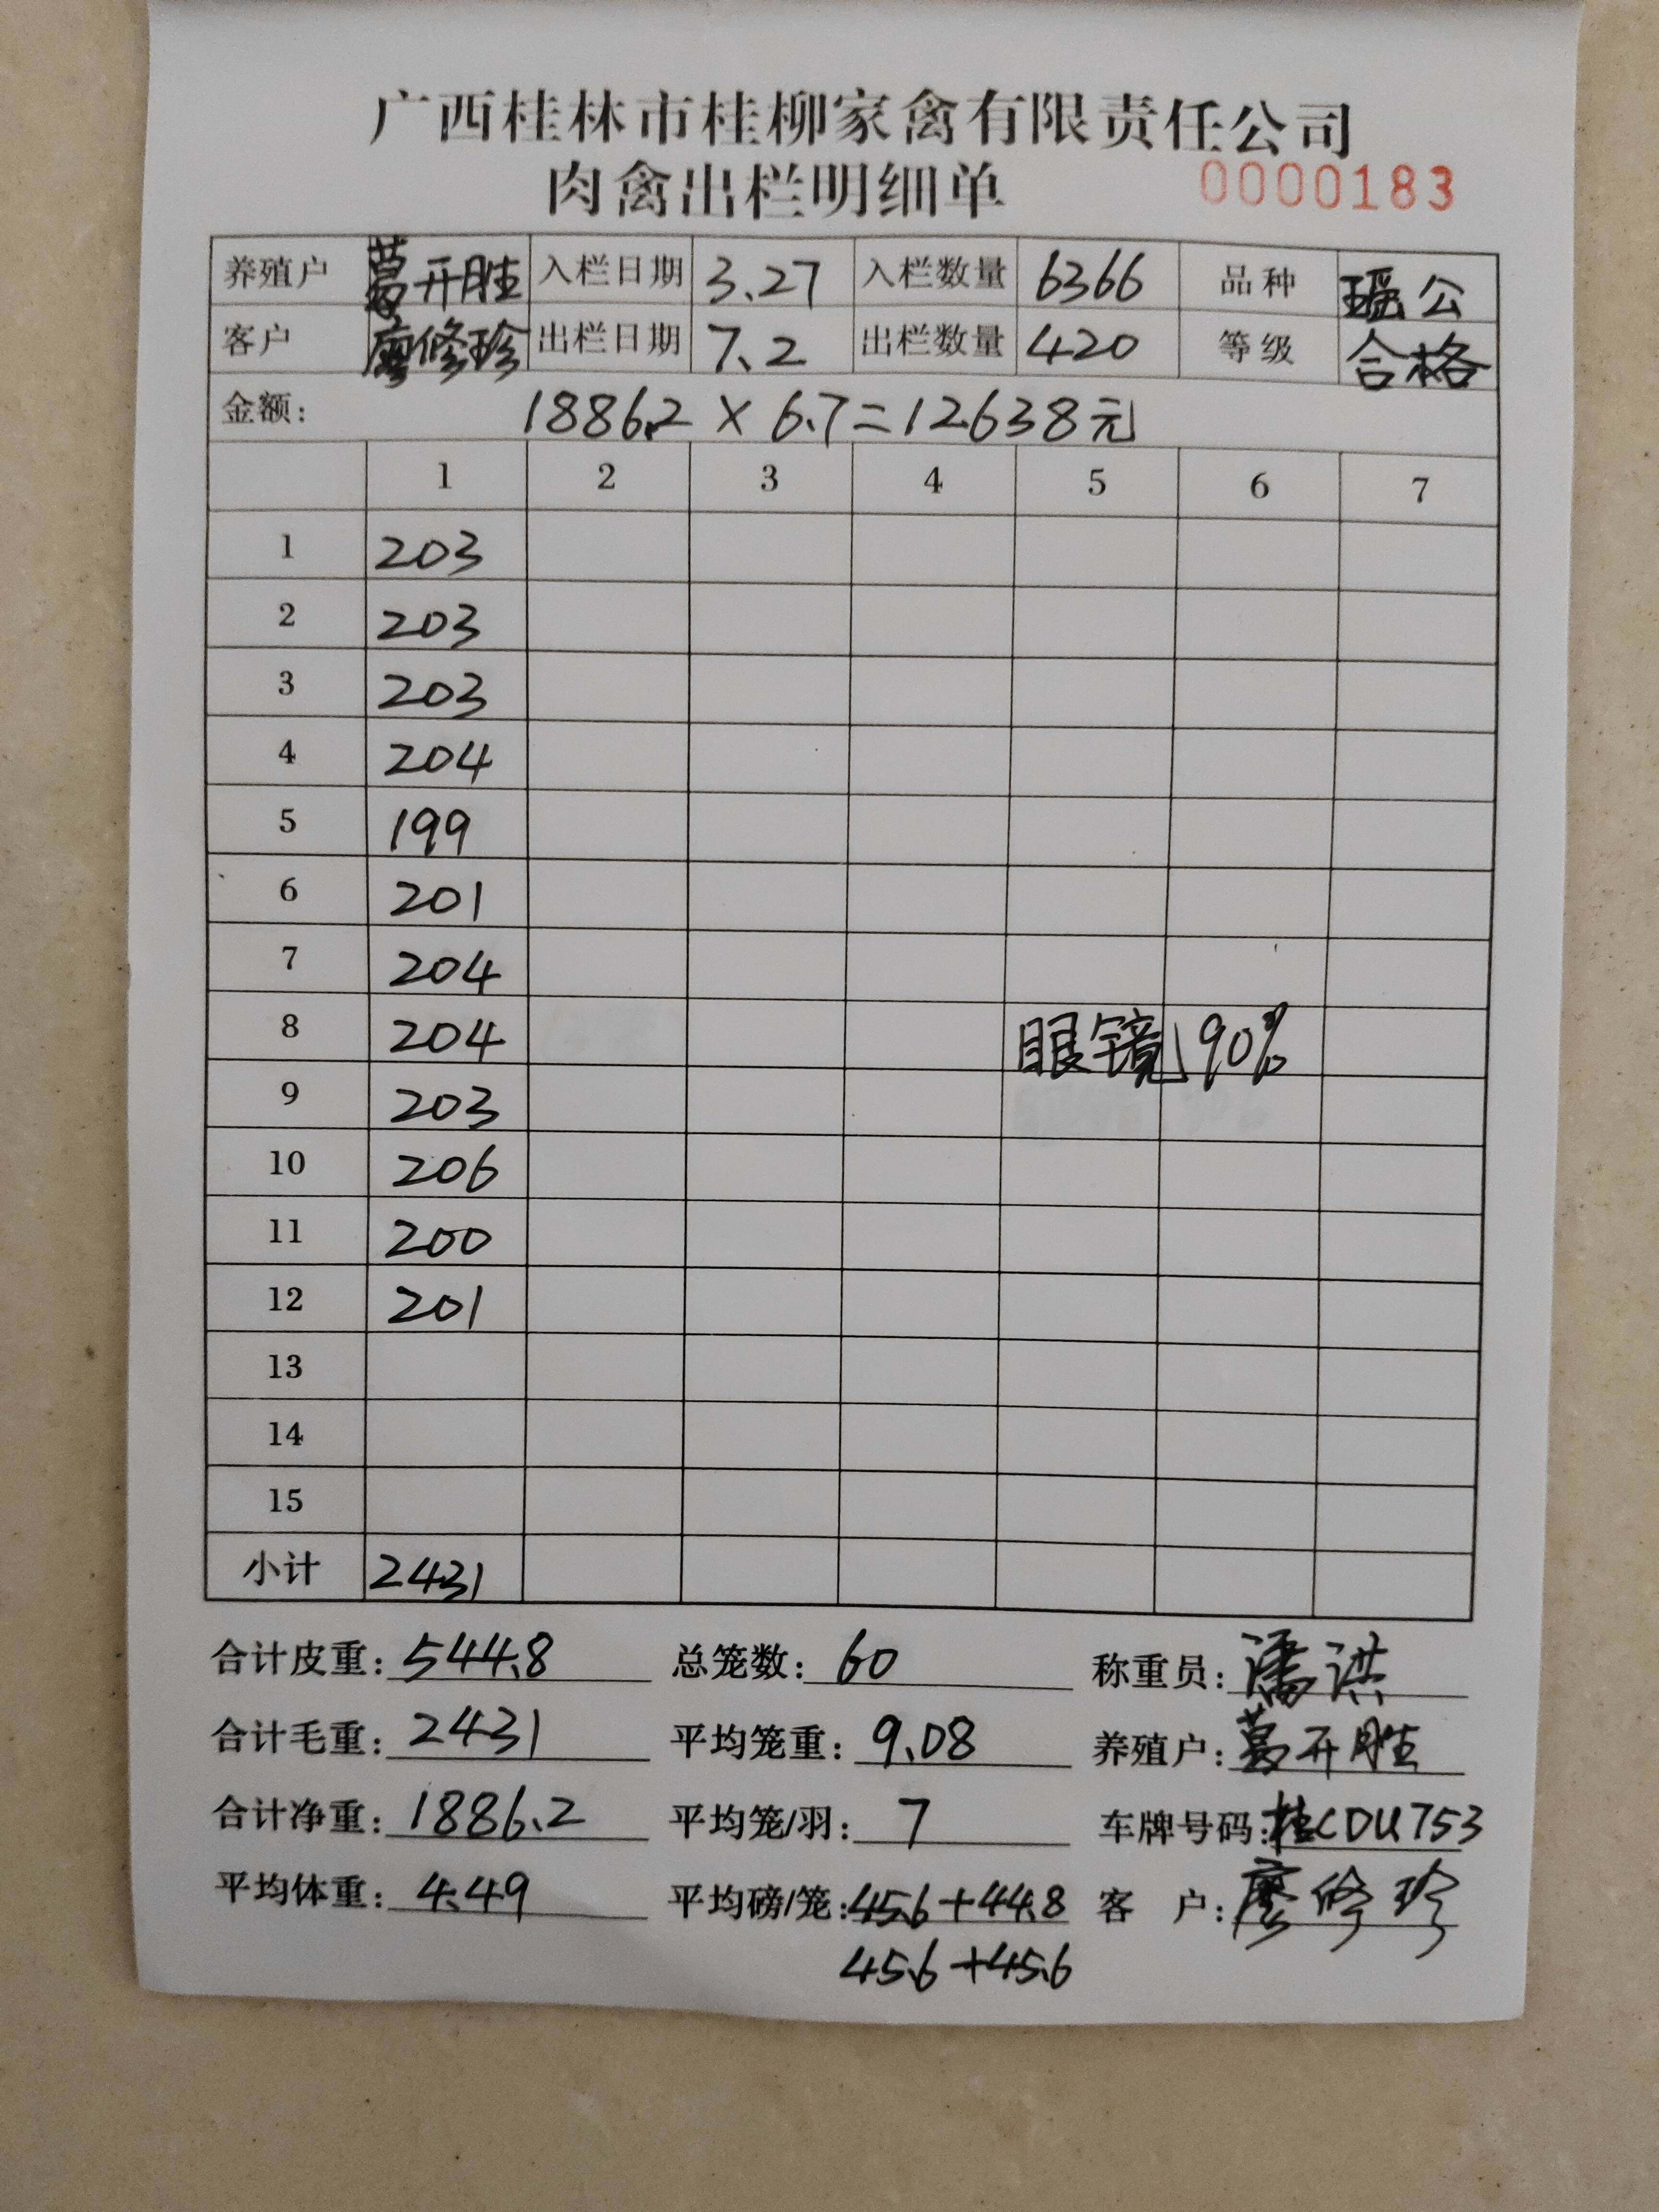 广西桂林市桂柳家禽有限责任公司
肉禽出栏明细单 0000183
养殖户 葛开胜 入栏日期 3.27 入栏数量 6366 品种 瑶公
客户 廖修珍 出栏日期 7.2 出栏数量 420 等级 合格
金额: 1886.2 × 6.7=12638元
1 2 3 4 5 6 7
1 203
2 203
3 203
4 204
5 199
6 201
7 204
8 204 眼镜90%
9 203
10 206
11 200
12 201
13
14
15
小计 2431
合计皮重: 544.8 总笼数: 60 称重员: 潘洪
合计毛重: 2431 平均笼重: 9.08 养殖户: 葛开胜
合计净重: 1886.2 平均笼/羽: 7 车牌号码: 桂CDU753
平均体重: 4.49 平均磅/笼: 45.6+44.8 客 户: 廖修珍
45.6+45.6